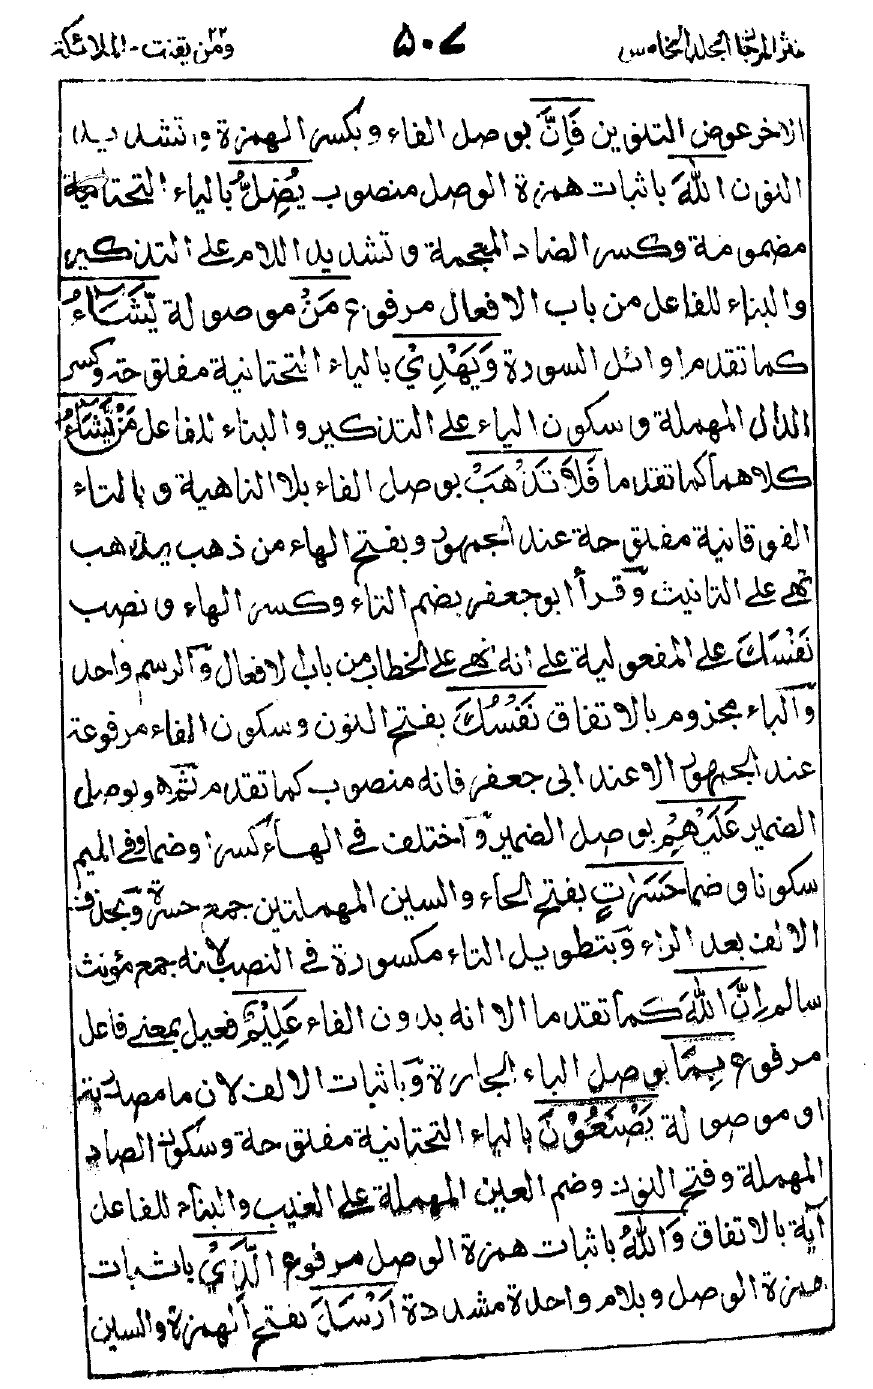 نثر المرجان المجلد الخامس ٥٠٧ ومن يقنت ٢٢ - الملائكة
الاخر عوض التنوين فَاِنَّ بوصل الفاء وبكسر الهمزة وتشديد
النون اللّٰهَ باثبات همزة الوصل منصوب يُضِلُّ بالياء التحتانية
مضمومة وكسر الضاد المعجمة وتشديد اللام على التذكير
والبناء للفاعل من باب الافعال مرفوع مَنْ موصولة يَّشَآءُ
كما تقدم اوائل السورة وَيَهْدِيْ بالياء التحتانية مفتوحة وكسر
الدال المهملة وسكون الياء على التذكير والبناء للفاعل مَنْ يَّشَآءُ
كلاهما كما تقدما فَلَا تَذْهَبْ بوصل الفاء بلا الناهية وبالتاء
الفوقانية مفتوحة عند الجمهور وبفتح الهاء من ذهب يذهب
نهي على التانيث وقرأ ابو جعفر بضم التاء وكسر الهاء ونصب
نَفْسَكَ على المفعولية على انه نهي على الخطاب من باب الافعال والرسم واحد
والباء مجزوم بالاتفاق نَفْسُكَ بفتح النون وسكون الفاء مرفوعة
عند الجمهور الا عند ابي جعفر فانه منصوب كما تقدم ثمره وبوصل
الضمير عَلَيْهِمْ بوصل الضمير واختلف في الهاء كسرا وضما وفي الميم
سكونا وضما حَسَرٰتٍ بفتح الحاء والسين المهملتين جمع حسرة وبحذف
الالف بعد الراء وبتطويل التاء مكسورة في النصب لانه جمع مؤنث
سالم اِنَّ اللّٰهَ كما تقدما الا انه بدون الفاء عَلِيْمٌ فعيل بمعنى فاعل
مرفوع بِمَا بوصل الباء الجارة وباثبات الالف لان ما مصدرية
او موصولة يَصْنَعُوْنَ بالياء التحتانية مفتوحة وسكون الصاد
المهملة وفتح النون وضم العين المهملة على الغيب والبناء للفاعل
آية بالاتفاق وَاللّٰهُ باثبات همزة الوصل مرفوع الَّذِيْ باثبات
همزة الوصل وبلام واحدة مشددة اَرْسَلَ بفتح الهمزة والسين